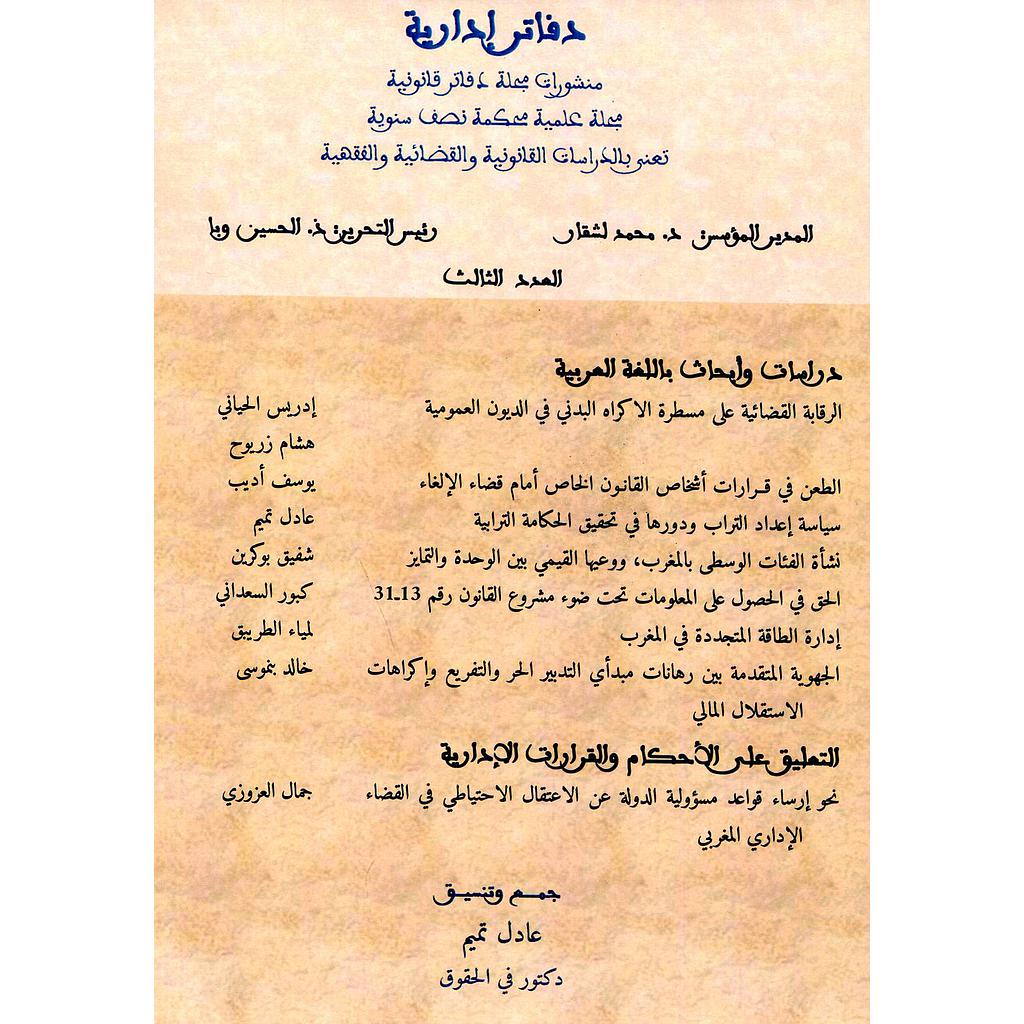 دفاتر إدارية
منشورات مجلة دفاتر قانونية
مجلة علمية محكمة نصف سنوية
تعنى بالدراسات القانونية والقضائية والفقهية
المدير المؤسس: د. محمد لشقار رئيس التحرير: ذ. الحسين وبا
العدد الثالث
دراسات وأبحاث باللغة العربية
الرقابة القضائية على مسطرة الاكراه البدني في الديون العمومية إدريس الحياني
هشام زريوح
الطعن في قرارات أشخاص القانون الخاص أمام قضاء الإلغاء يوسف أديب
سياسة إعداد التراب ودورها في تحقيق الحكامة الترابية عادل تميم
نشأة الفئات الوسطى بالمغرب، ووعيها القيمي بين الوحدة والتمايز شفيق بوكرين
الحق في الحصول على المعلومات تحت ضوء مشروع القانون رقم 13ـ31 كبور السعداني
إدارة الطاقة المتجددة في المغرب لمياء الطريبق
الجهوية المتقدمة بين رهانات مبدأي التدبير الحر والتفريع وإكراهات خالد بنموسى
الاستقلال المالي
التعليق على الأحكام والقرارات الإدارية
نحو إرساء قواعد مسؤولية الدولة عن الاعتقال الاحتياطي في القضاء جمال العزوزي
الإداري المغربي
جمع وتنسيق
عادل تميم
دكتور في الحقوق